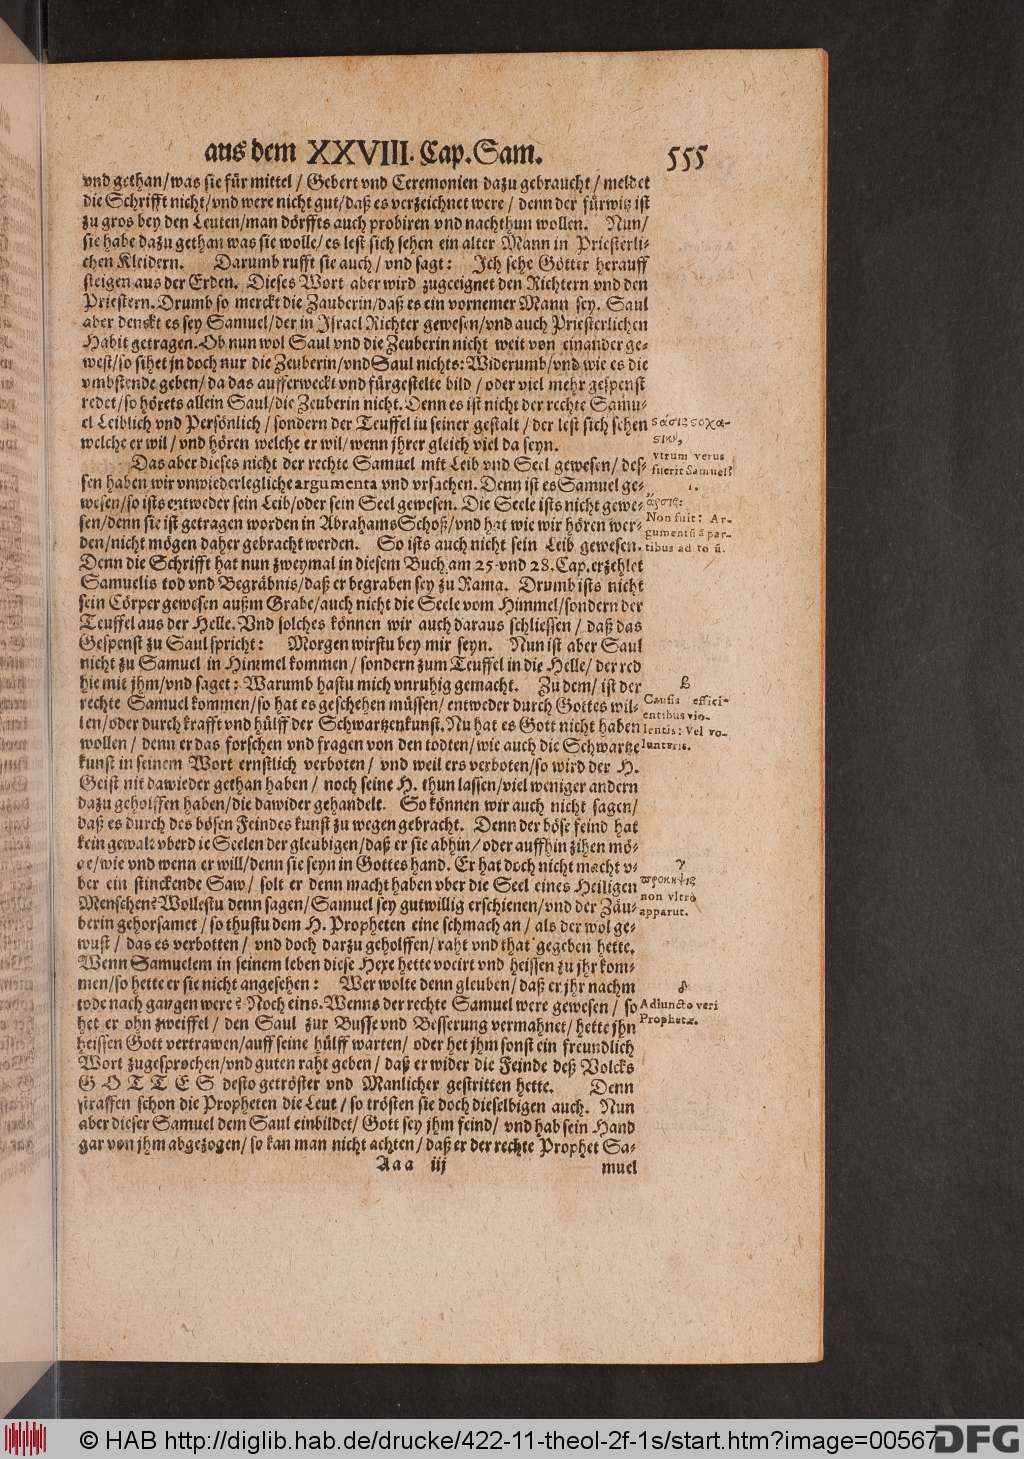 aus dem XXVIII. Cap. Sam. 555
vnd gethan/was sie für mittel / Gebert vnd Ceremonien dazu gebraucht / meldet
die Schrifft nicht/vnd were nicht gut/daß es verzeichnet were / denn der fürwitz ist
zu gros bey den Leuten/man dörffts auch probiren vnd nachthun wollen. Nun/
sie habe dazu gethan was sie wolle/es lest sich sehen ein alter Mann in Priesterli-
chen Kleidern. Darumb rufft sie auch / vnd sagt: Ich sehe Götter herauff
steigen aus der Erden. Dieses Wort aber wird zugeeignet den Richtern vnd den
Priestern. Drumb so merckt die Zauberin/daß es ein vornemer Mann sey. Saul
aber denckt es sey Samuel/der in Israel Richter gewesen/vnd auch Priesterlichen
Habit getragen. Ob nun wol Saul vnd die Zeuberin nicht weit von einander ge-
west/so sihet jn doch nur die Zeuberin/vnd Saul nichts: Widerumb/vnd wie es die
vmbstende geben/da das aufferweckt vnd fürgestelte bild / oder viel mehr gespenst
redet/so hörets allein Saul/die Zeuberin nicht. Denn es ist nicht der rechte Samu-
el Leiblich vnd Persönlich / sondern der Teuffel in seiner gestalt / der lest sich sehen
welche er wil / vnd hören welche er wil/wenn jhrer gleich viel da seyn.
vtrum verus
fuerit Samuel?
Das aber dieses nicht der rechte Samuel mit Leib vnd Seel gewesen/ des-
sen haben wir vnwiederlegliche argumenta vnd vrsachen. Denn ist es Samuel ge-
wesen/so ists entweder sein Leib/oder sein Seel gewesen. Die Seele ists nicht gewe-
sen/denn sie ist getragen worden in Abrahams Schoß/vnd hat wie wir hören wer-
den/nicht mögen daher gebracht werden. So ists auch nicht sein Leib gewesen.
1.
Non fuit: Ar-
gumentū à par-
tibus ad to ū.
Denn die Schrifft hat nun zweymal in diesem Buch am 25. vnd 28. Cap. erzehlet
Samuelis tod vnd Begräbnis/daß er begraben sey zu Rama. Drumb ists nicht
sein Cörper gewesen außm Grabe/auch nicht die Seele vom Himmel/sondern der
Teuffel aus der Helle. Vnd solches können wir auch daraus schliessen / daß das
Gespenst zu Saul spricht: Morgen wirstu bey mir seyn. Nun ist aber Saul
nicht zu Samuel in Himmel kommen / sondern zum Teuffel in die Helle/ der red
hie mit jhm/vnd saget: Warumb hastu mich vnruhig gemacht. Zu dem/ ist der
rechte Samuel kommen/so hat es geschehen müssen/ entweder durch Gottes wil-
len/oder durch krafft vnd hülff der Schwartzenkunst. Nu hat es Gott nicht haben
wollen / denn er das forschen vnd fragen von den todten/wie auch die Schwartze
β
Causis effici-
entibus vio-
lentis: Vel vo-
luntariis.
kunst in seinem Wort ernstlich verboten / vnd weil ers verboten/so wird der H.
Geist nit dawieder gethan haben / noch seine H. thun lassen/viel weniger andern
dazu geholffen haben/die dawider gehandelt. So können wir auch nicht sagen/
daß es durch des bösen Feindes kunst zu wegen gebracht. Denn der böse feind hat
kein gewalt vber die Seelen der gleubigen/daß er sie abhin/oder auffhin zihen mö-
ge/wie vnd wenn er will/denn sie seyn in Gottes hand. Er hat doch nicht macht v-
ber ein stinckende Saw/ solt er denn macht haben vber die Seel eines Heiligen
Menschen? Wollestu denn sagen/ Samuel sey gutwillig erschienen/vnd der Zäu-
berin gehorsamet / so thustu dem H. Propheten eine schmach an / als der wol ge-
γ
non vltrò
apparut.
wust / das es verbotten / vnd doch darzu geholffen/ raht vnd that gegeben hette.
Wenn Samuelem in seinem leben diese Hexe hette vocirt vnd heissen zu jhr kom-
men/so hette er sie nicht angesehen: Wer wolte denn gleuben/ daß er jhr nachm
tode nach gangen were? Noch eins. Wenns der rechte Samuel were gewesen / so
het er ohn zweiffel / den Saul zur Busse vnd Besserung vermahnet/ hette jhn
δ
Adiuncto veri
Prophetæ.
heissen Gott vertrawen/auff seine hülff warten/ oder het jhm sonst ein freundlich
Wort zugesprochen/vnd guten raht geben / daß er wider die Feinde deß Volcks
G O T T E S desto getröster vnd Manlicher gestritten hette. Denn
straffen schon die Propheten die Leut / so trösten sie doch dieselbigen auch. Nun
aber dieser Samuel dem Saul einbildet/ Gott sey jhm feind/ vnd hab sein Hand
gar von jhm abgezogen/ so kan man nicht achten/ daß er der rechte Prophet Sa-
Aaa iij muel
© HAB http://diglib.hab.de/drucke/422-11-theol-2f-1s/start.htm?image=00567
DFG